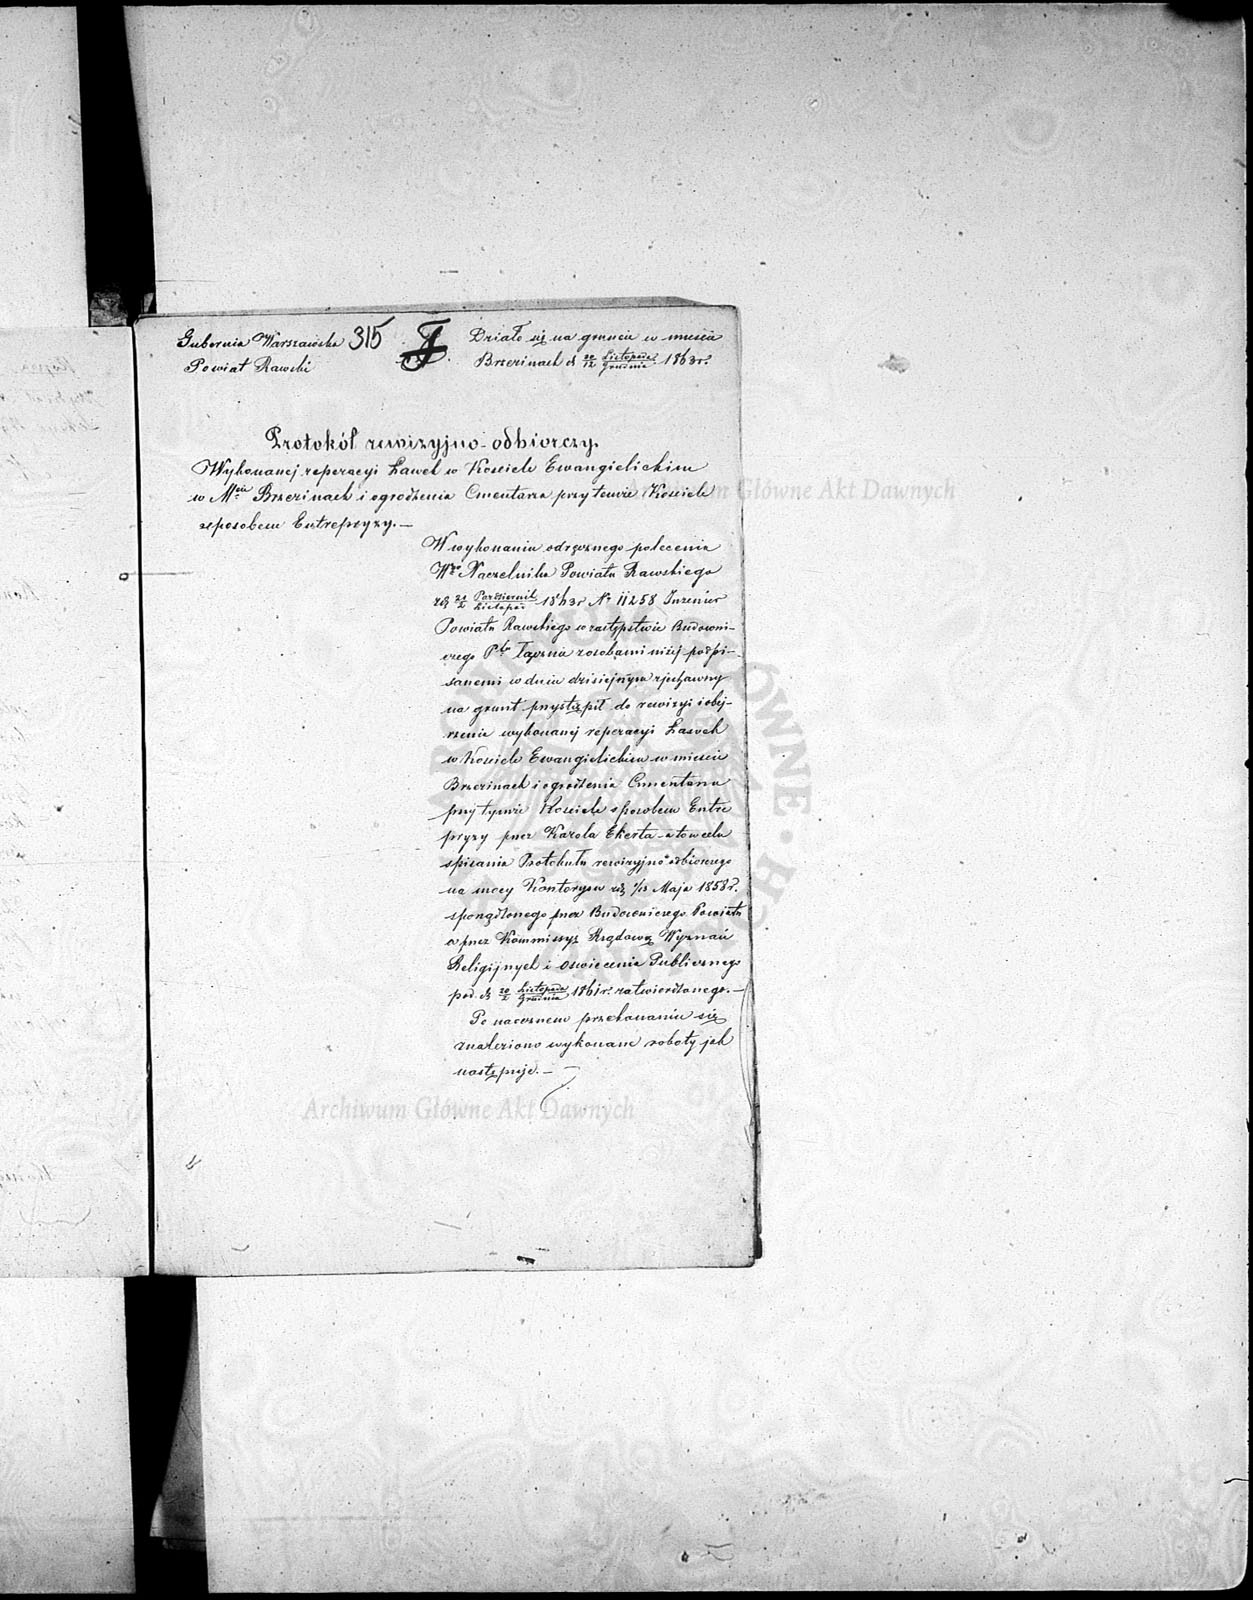 Gubernia Warszawska 315
Powiat Rawski
Działo się na gruncie w mieście
Brzezinach d. 30/12 Listopada/Grudnia 1863 r.
Protokół rewizyjno-odbiorczy.
Wykonanej reperacyi Ławek w Kościele Ewangielickim
w Mście Brzezinach i ogrodzenia Cmentarza przy temże Kościele
sposobem Entrepryzy.—
W wykonaniu odręcznego polecenia
Wgo Naczelnika Powiatu Rawskiego
z d. 21/2 Październik/Listopad 1863 r № 11258 Inżenier
Powiatu Rawskiego w zastępstwie Budowni-
czego Ptu łącznie z osobami niżej podpi-
sanemi w dniu dzisiejszym zjechawszy
na grunt przystąpił do rewizyi i obej-
rzenia wykonanej reperacyi Ławek
w Kościele Ewangielickim w mieście
Brzezinach i ogrodzenia Cmentarza
przy tymże Kościele sposobem Entre
pryzy przez Karola Ekerta a to w celu
spisania Protokułu rewizyjno odbiorczego
na mocy Kosztorysu z d. 1/13 Maja 1858 r.
sporządzonego przez Budowniczego Powiatu
a przez Kommissyą Rządową Wyznań
Religijnych i Oświecenia Publicznego
pod d. 20/2 Listopada/Grudnia 1861 r. zatwierdzonego.—
Po naocznem przekonaniu się
znaleziono wykonane roboty jak
następuje.—
Archiwum Główne Akt Dawnych
Archiwum Główne Akt Dawnych